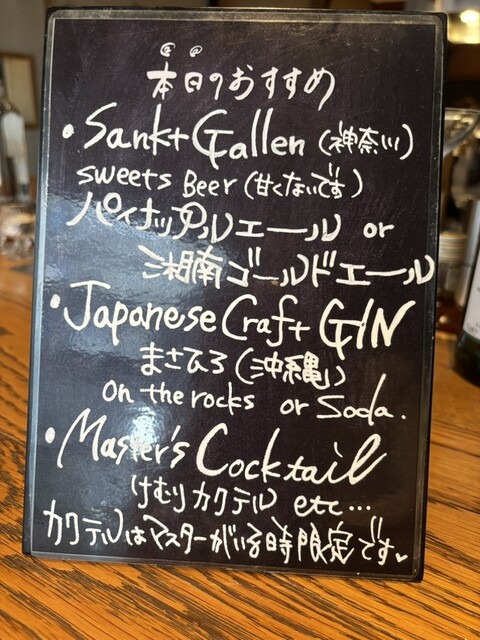 本日のおすすめ
・Sankt Gallen (神奈川)
sweets Beer (甘くないです)
パイナップルエール or
湘南ゴールドエール
・Japanese Craft GIN
まさひろ (沖縄)
on the rocks or Soda.
・Master's Cocktail
けむりカクテル etc…
カクテルはマスターがいる時限定です♥